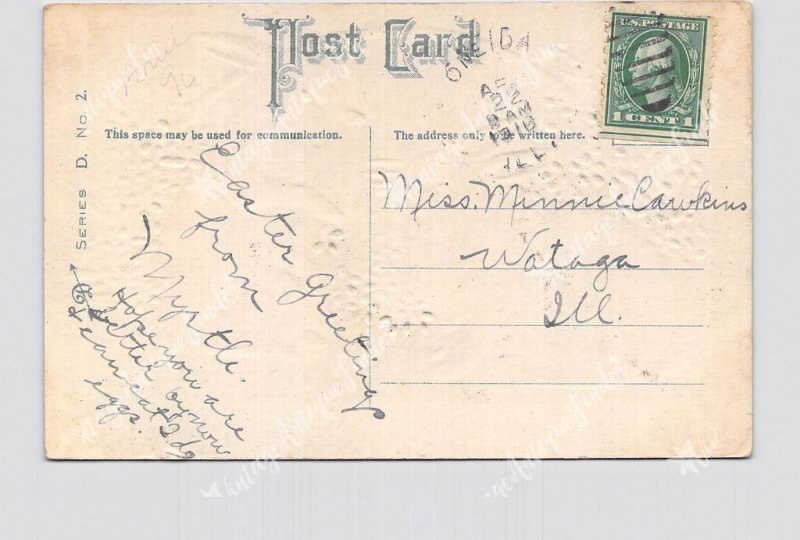 Post Card
ONEIDA
2
8 AM
ILL.
U.S. POSTAGE
1 CENT 1
This space may be used for communication.
The address only to be written here.
SERIES D. NO. 2.
Easter Greetings
from
Myrtle.
Hope you are
better by now
& can eat 2 dz
eggs.
Miss. Minnie Cawkins
Wataga
Ill.